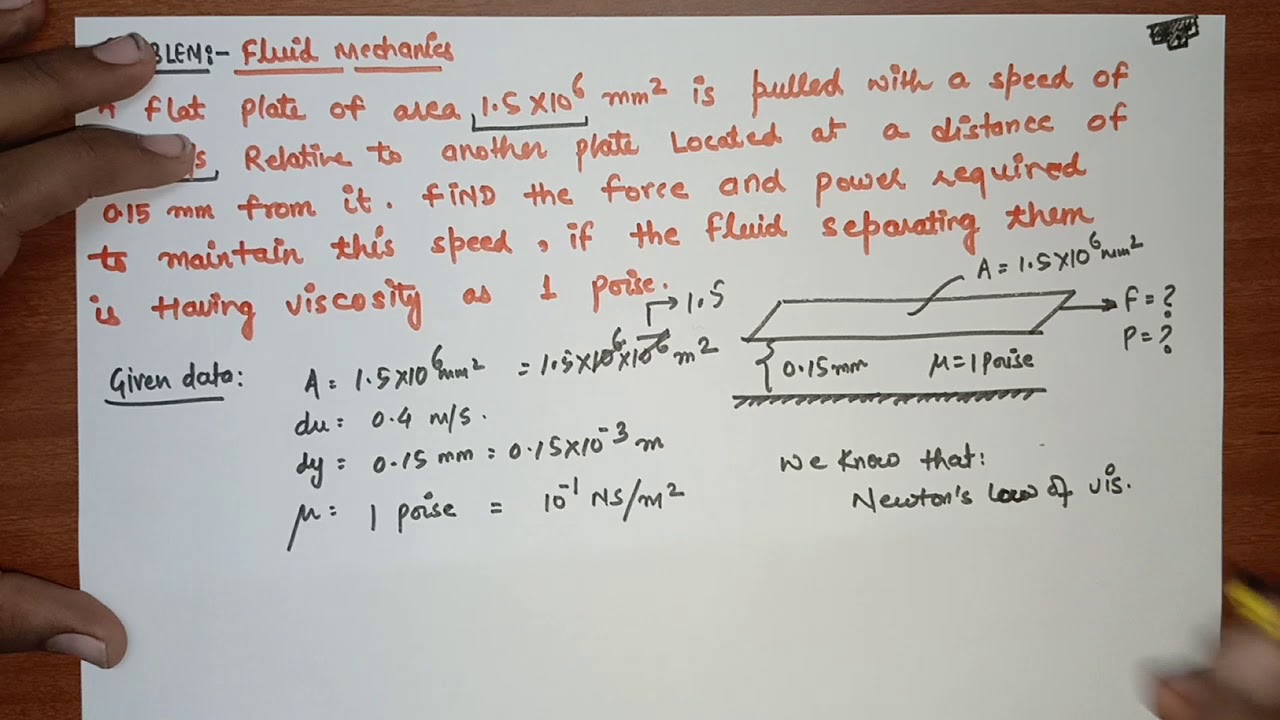 Fluid Mechanics
flat plate of area 1.5 X10⁶ mm² is pulled with a speed of
Relative to another plate Located at a distance of
0.15 mm from it. FIND the force and power required
to maintain this speed, if the fluid separating them
is Having viscosity as 1 poise.
A = 1.5X10⁶mm²
F = ?
P = ?
0.15mm μ = 1 Poise
Given data: A = 1.5X10⁶mm² = 1.5X10⁶X10⁻⁶ m² → 1.5
du = 0.4 m/s.
dy = 0.15 mm = 0.15X10⁻³ m
μ = 1 poise = 10⁻¹ NS/m²
We know that:
Newton's law of vis.